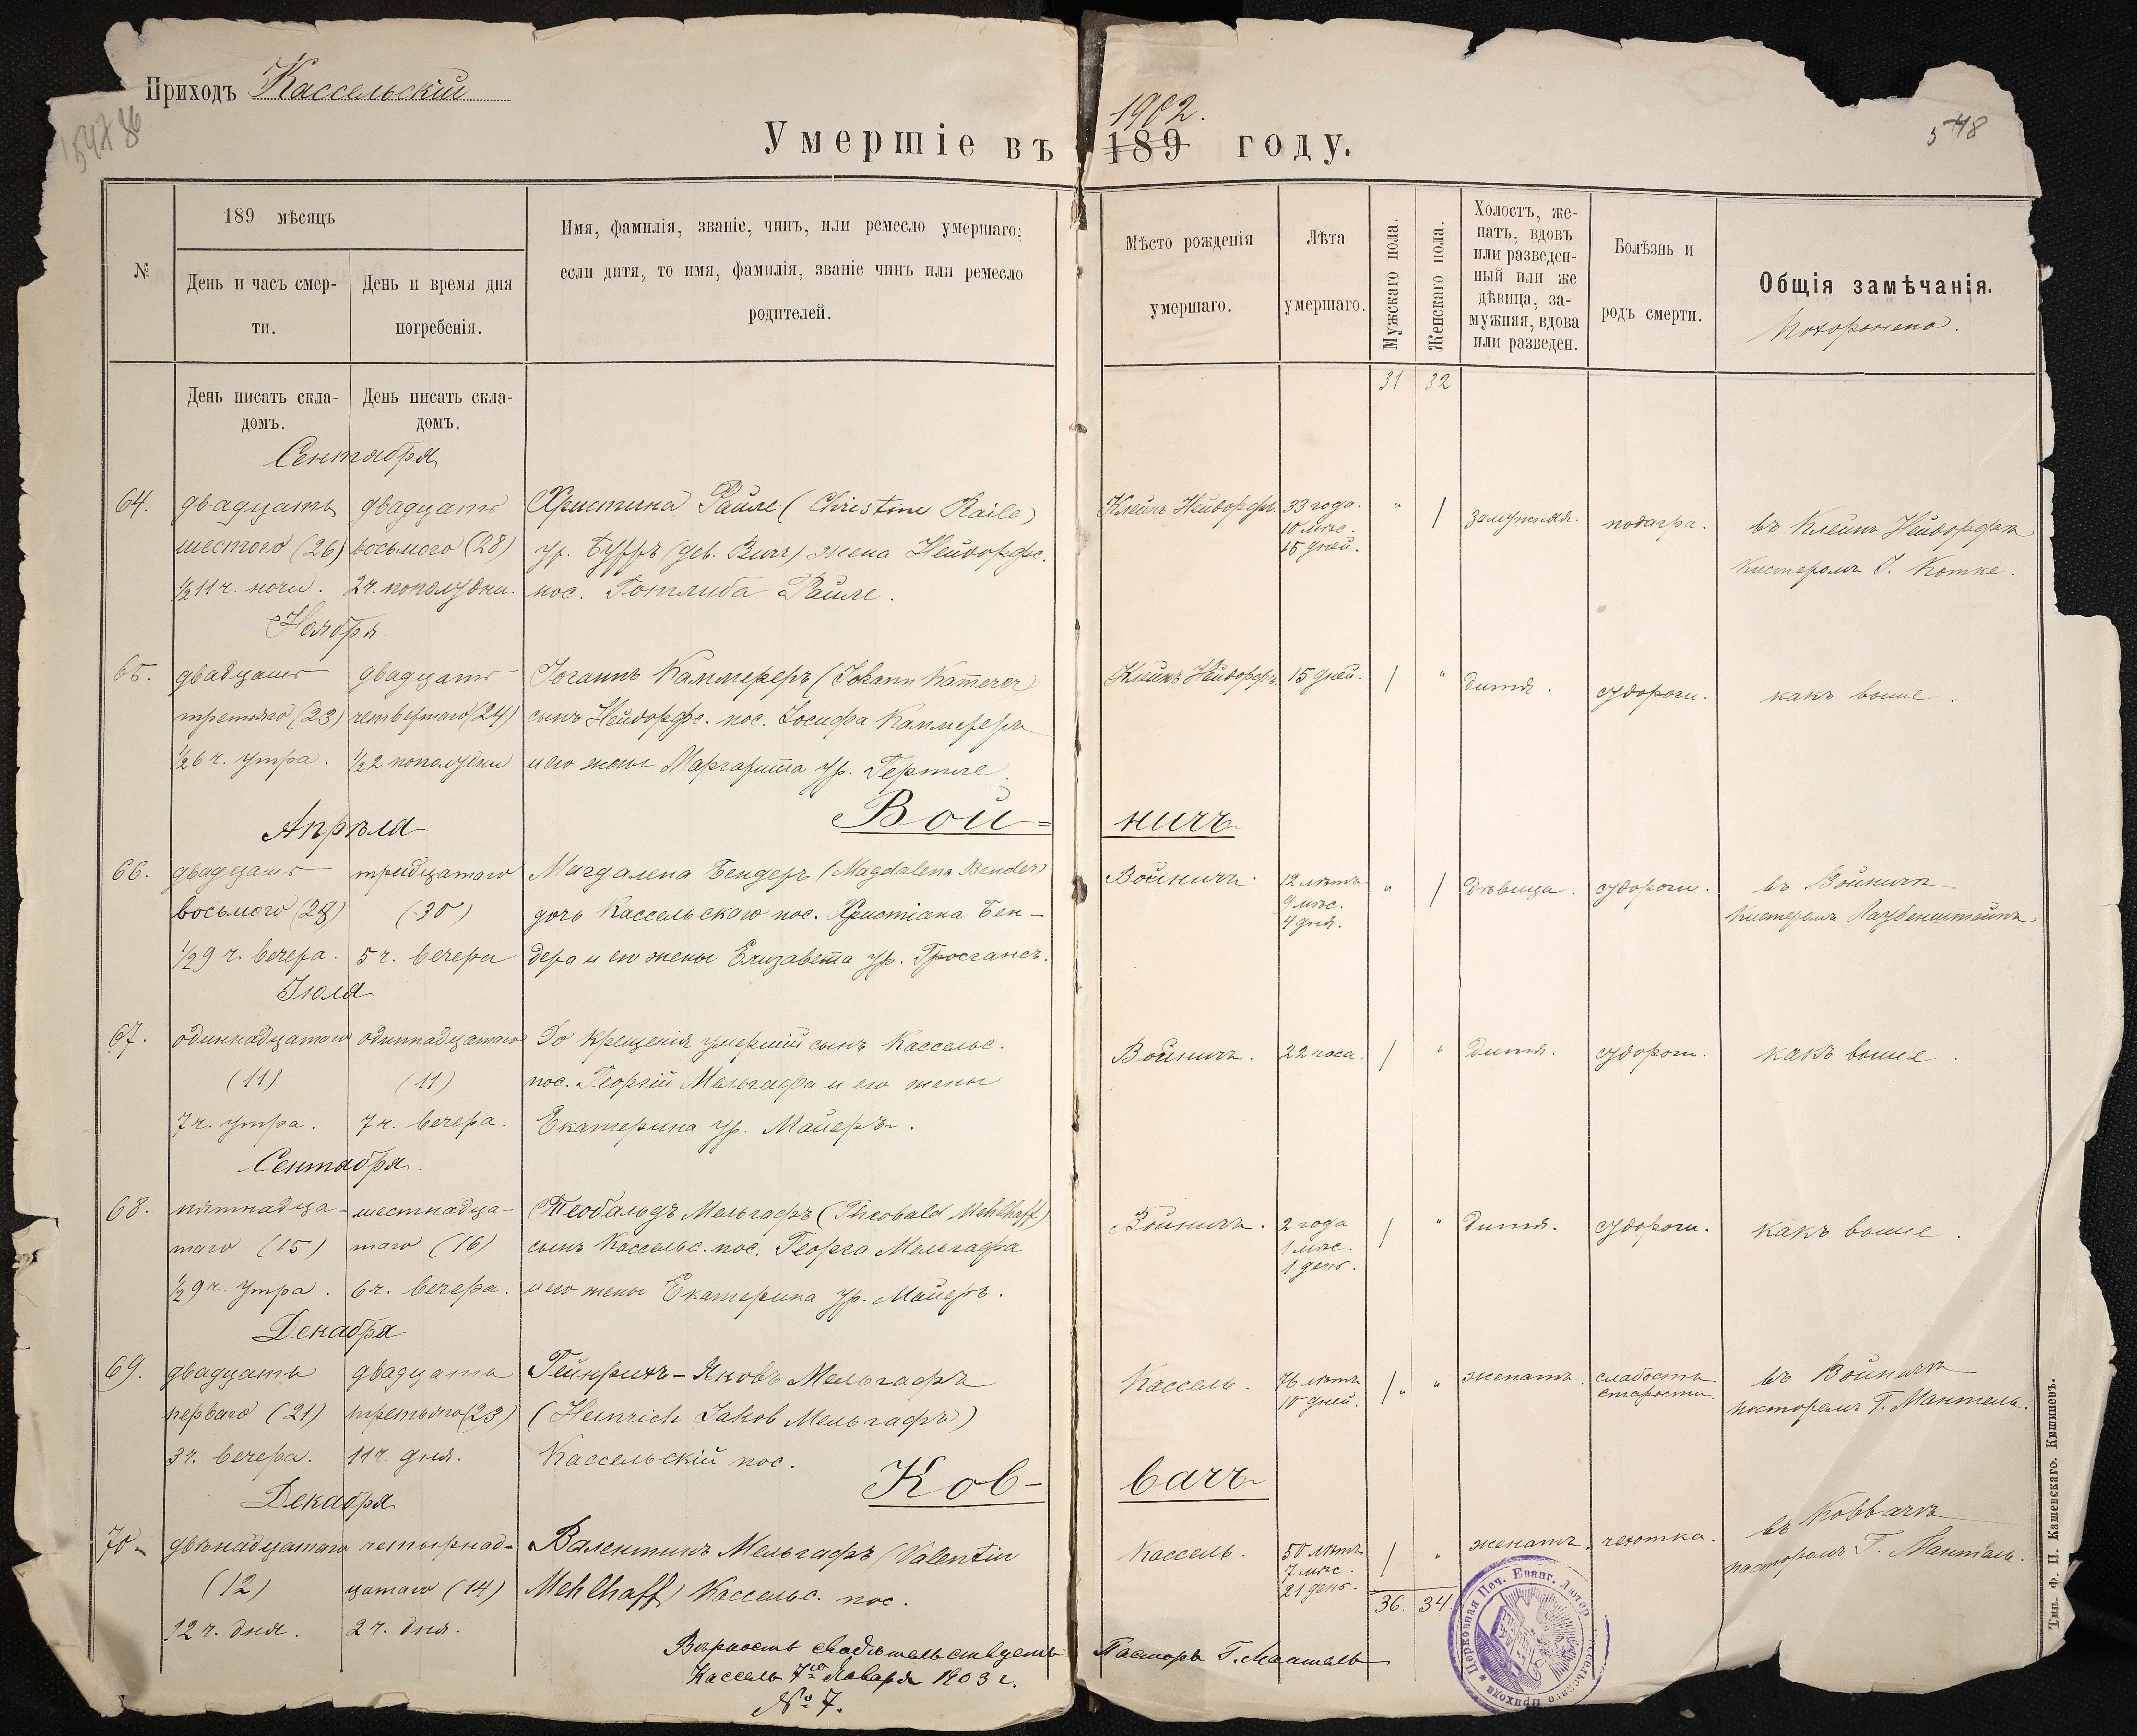 Приходъ Кассельскій
1902.
Умершіе въ 189 году.
548
№
189 мѣсяцъ
День и часъ смер-
ти.
День и время дня
погребенія.
Имя, фамилія, званіе, чинъ, или ремесло умершаго;
если дитя, то имя, фамилія, званіе чинъ или ремесло
родителей.
Мѣсто рожденія
умершаго.
Лѣта
умершаго.
Мужскаго пола.
Женскаго пола.
Холостъ, же-
натъ, вдовъ
или разведен-
ный или же
дѣвица, за-
мужняя, вдова
или разведен.
Болѣзнь и
родъ смерти.
Общія замѣчанія.
Похоронено.
31 32
День писать скла-
домъ.
День писать скла-
домъ.
Сентября
64. двадцать двадцать Христина Райле (Christine Raile) Клейнъ Нейдорфъ 33 года. " / замужняя. подагра. въ Клейнъ Нейдорфѣ
10 мѣс.
15 дней.
шестого (26) восьмого (28) ур. Буффъ (геб. ) жена Нейдорфс. Кистеромъ І. Котке.
½11 ч. ночи. 2 ч. пополудни. пос. Готлиба Райле.
Ноября
65. двадцать двадцать Іоганнъ Каммереръ (Johann Kam̅erer) Клейнъ Нейдорфъ. 15 дней. / " дитя. судороги. какъ выше.
третьяго (23) четвертаго (24) сынъ Нейдорфс. пос. Іосифа Каммереръ
½6 ч. утра. ½2 пополудни и его жены Маргарита ур. Гертле.
Вой= ничъ
Апрѣля
66. двадцать тридцатаго Магдалена Бендеръ (Magdalena Bender) Войничъ. 12 лѣтъ " / дѣвица. судороги. въ Войничѣ
9 мѣс.
4 дня.
восьмого (28) (30) дочь Кассельскаго пос. Христіана Бен- Кистеромъ Лаубенштейнъ
½9 ч. вечера. 5 ч. вечера дера и его жены Елизавета ур. Гросгансъ.
Іюля
67. одиннадцатаго одиннадцатаго До крещенія умершій сынъ Кассельс. Войничъ. 22 часа. / " дитя. судороги. какъ выше.
(11) (11) пос. Георгій Мельгафа и его жены
7 ч. утра. 7 ч. вечера. Екатерина ур. Майеръ.
Сентября
68. пятнадца- шестнадца- Теобальдъ Мельгафъ (Theobald Mehlhaff) Войничъ. 2 года / " дитя. судороги. какъ выше.
1 мѣс.
1 день.
таго (15) таго (16) сынъ Кассельс. пос. Георга Мельгафа
½9 ч. утра. 6 ч. вечера. и его жены Екатерина ур. Майеръ.
Декабря
69. двадцать двадцать Гейнрихъ-Яковъ Мельгафъ Кассель. 76 лѣтъ / " женатъ. слабость въ Войничѣ
10 дней. старости.
перваго (21) третьяго (23) (Heinrich Jakob Мельгафъ) пасторомъ Г. Мантель.
3 ч. вечера. 11 ч. дня. Кассельскій пос.
Ков- вачъ
Декабря
70. двѣнадцатаго четырнад- Валентинъ Мельгафъ (Valentin Кассель. 50 лѣтъ / " женатъ. чахотка. въ Коввачѣ
7 мѣс.
21 день.
(12) цатаго (14) Mehlhaff) Кассельс. пос. 36. 34. пасторомъ Г. Манталь.
12 ч. дня. 2 ч. дня.
Вѣрность свидѣтельствуетъ Пасторъ Г. Мантель
Кассель 7го Января 1903 г.
№ 7.
Церковная Печ. Еванг. Лютер. Кассельскаго Прихода
Тип. Ф. П. Кашевскаго. Кишиневъ.